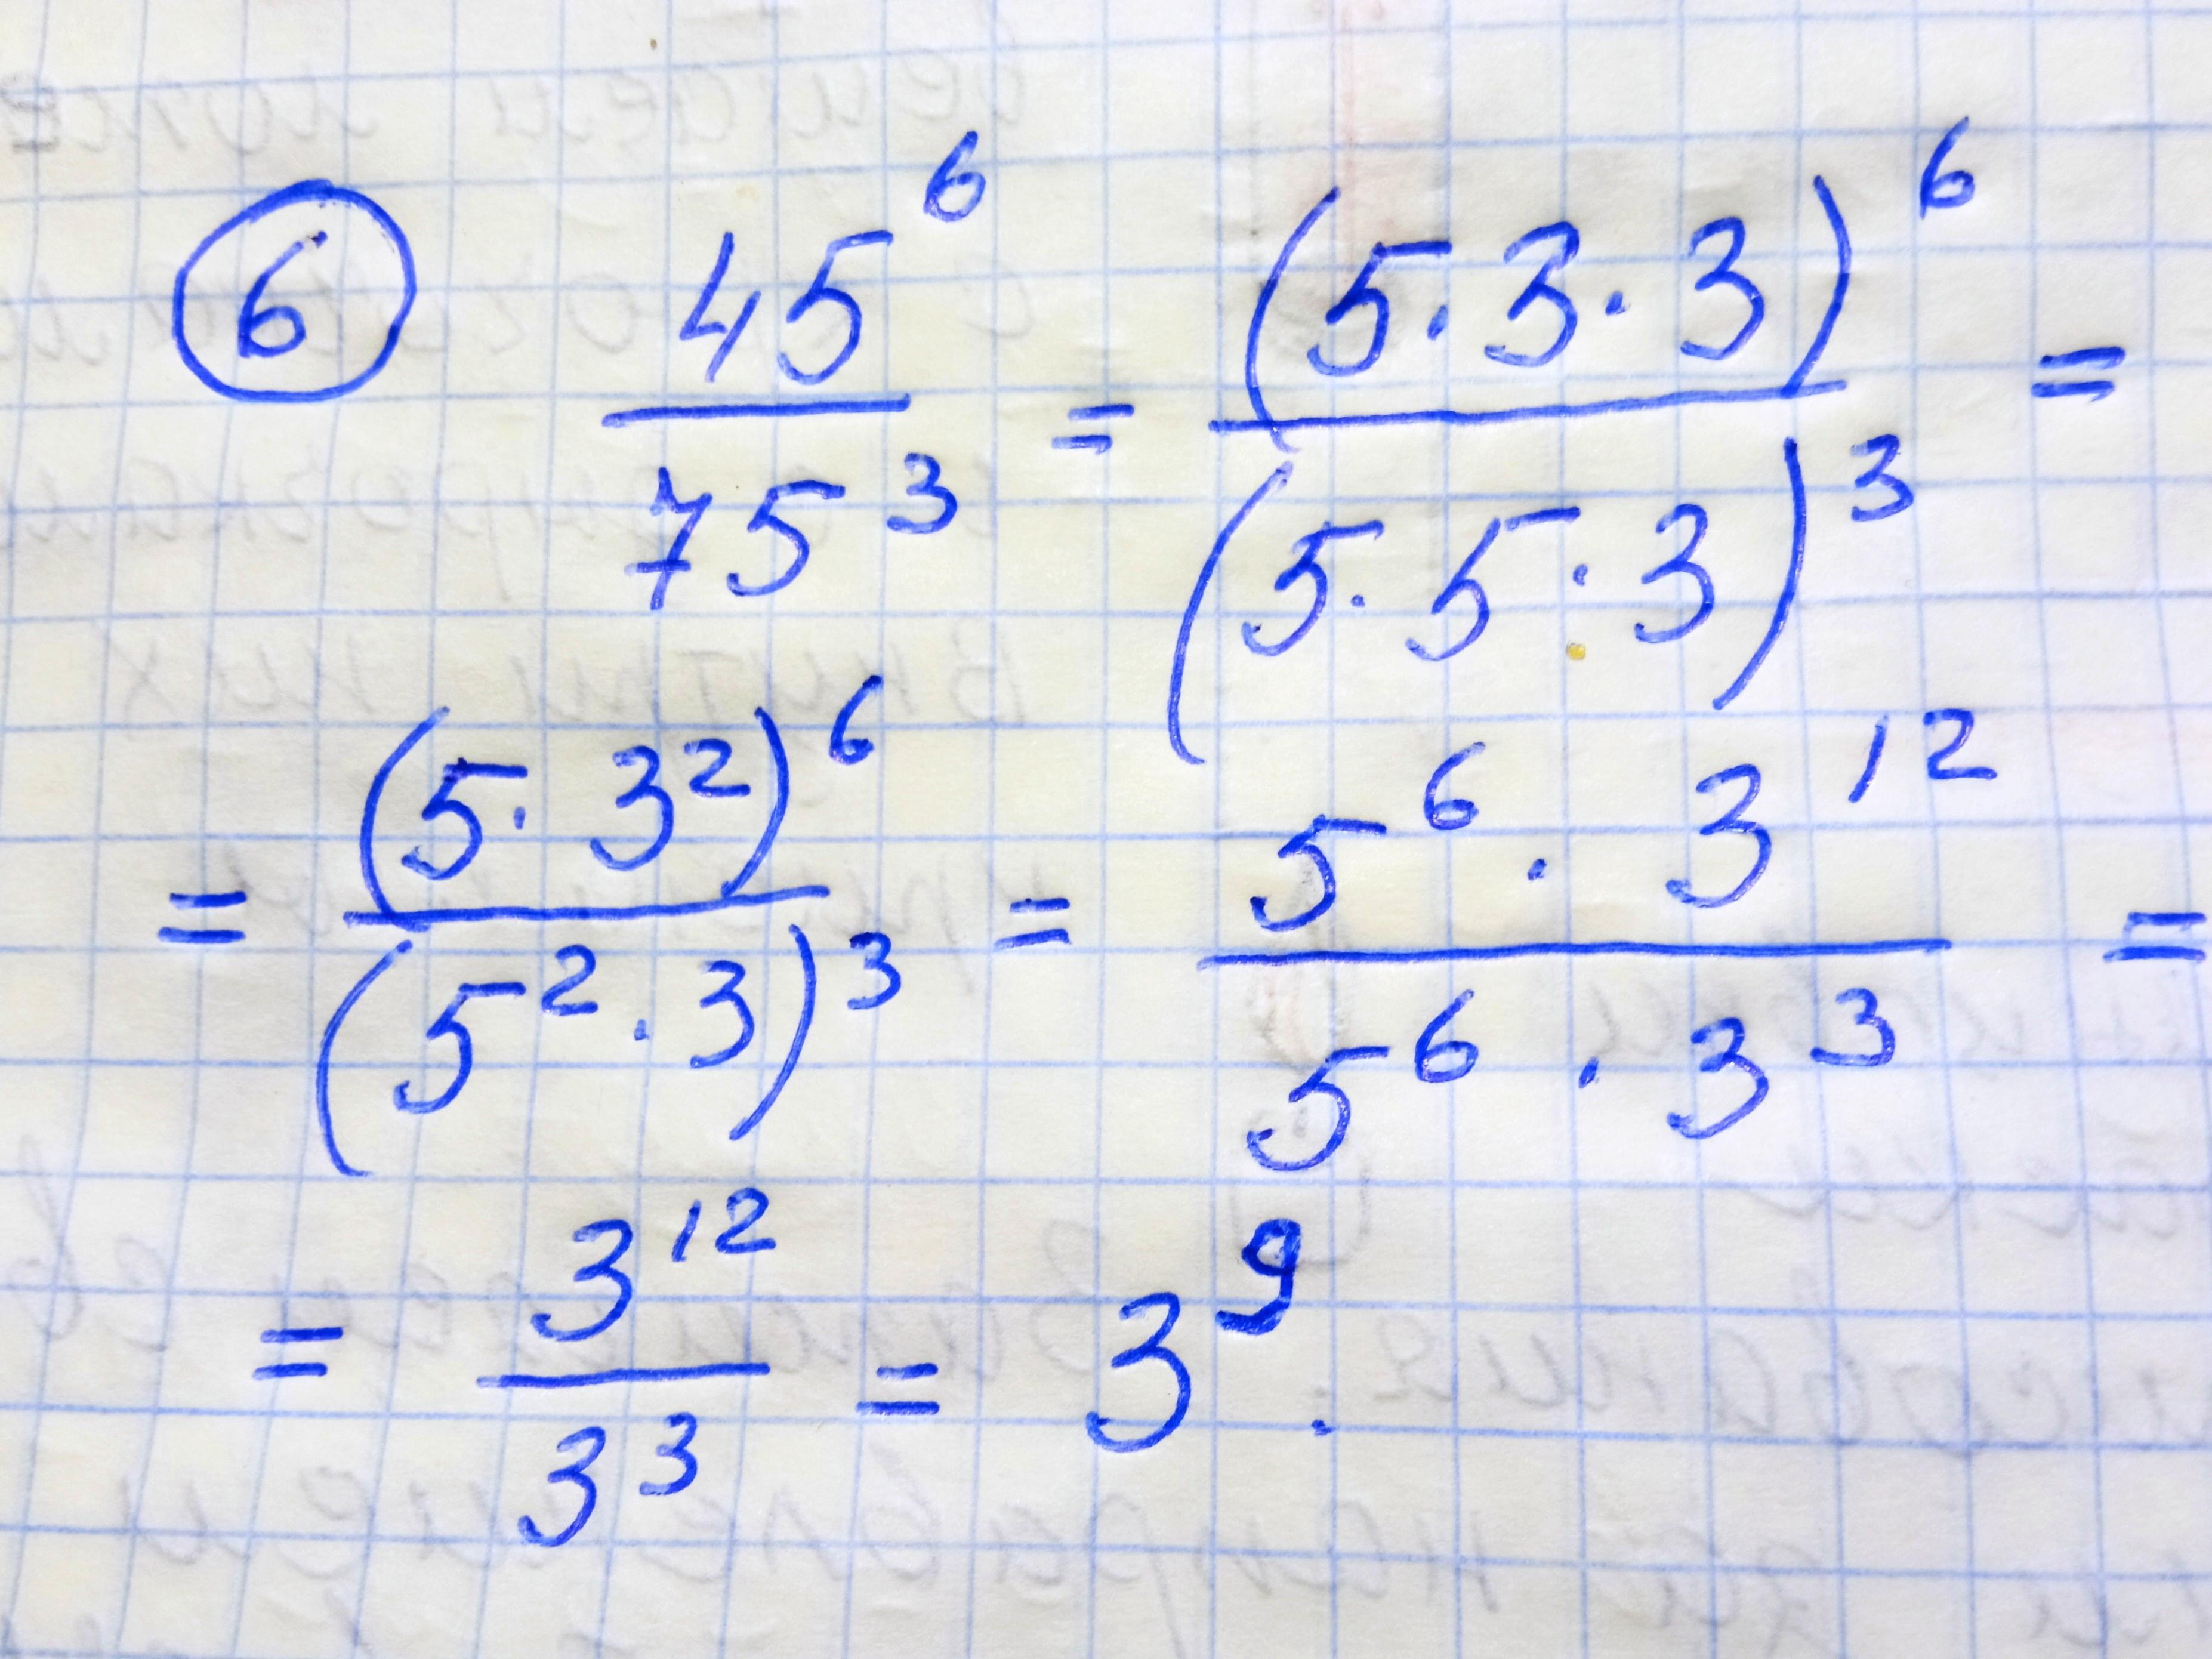 6 45⁶/75³ = (5·3·3)⁶/(5·5·3)³ =
= (5·3²)⁶/(5²·3)³ = 5⁶·3¹²/5⁶·3³ =
= 3¹²/3³ = 3⁹.